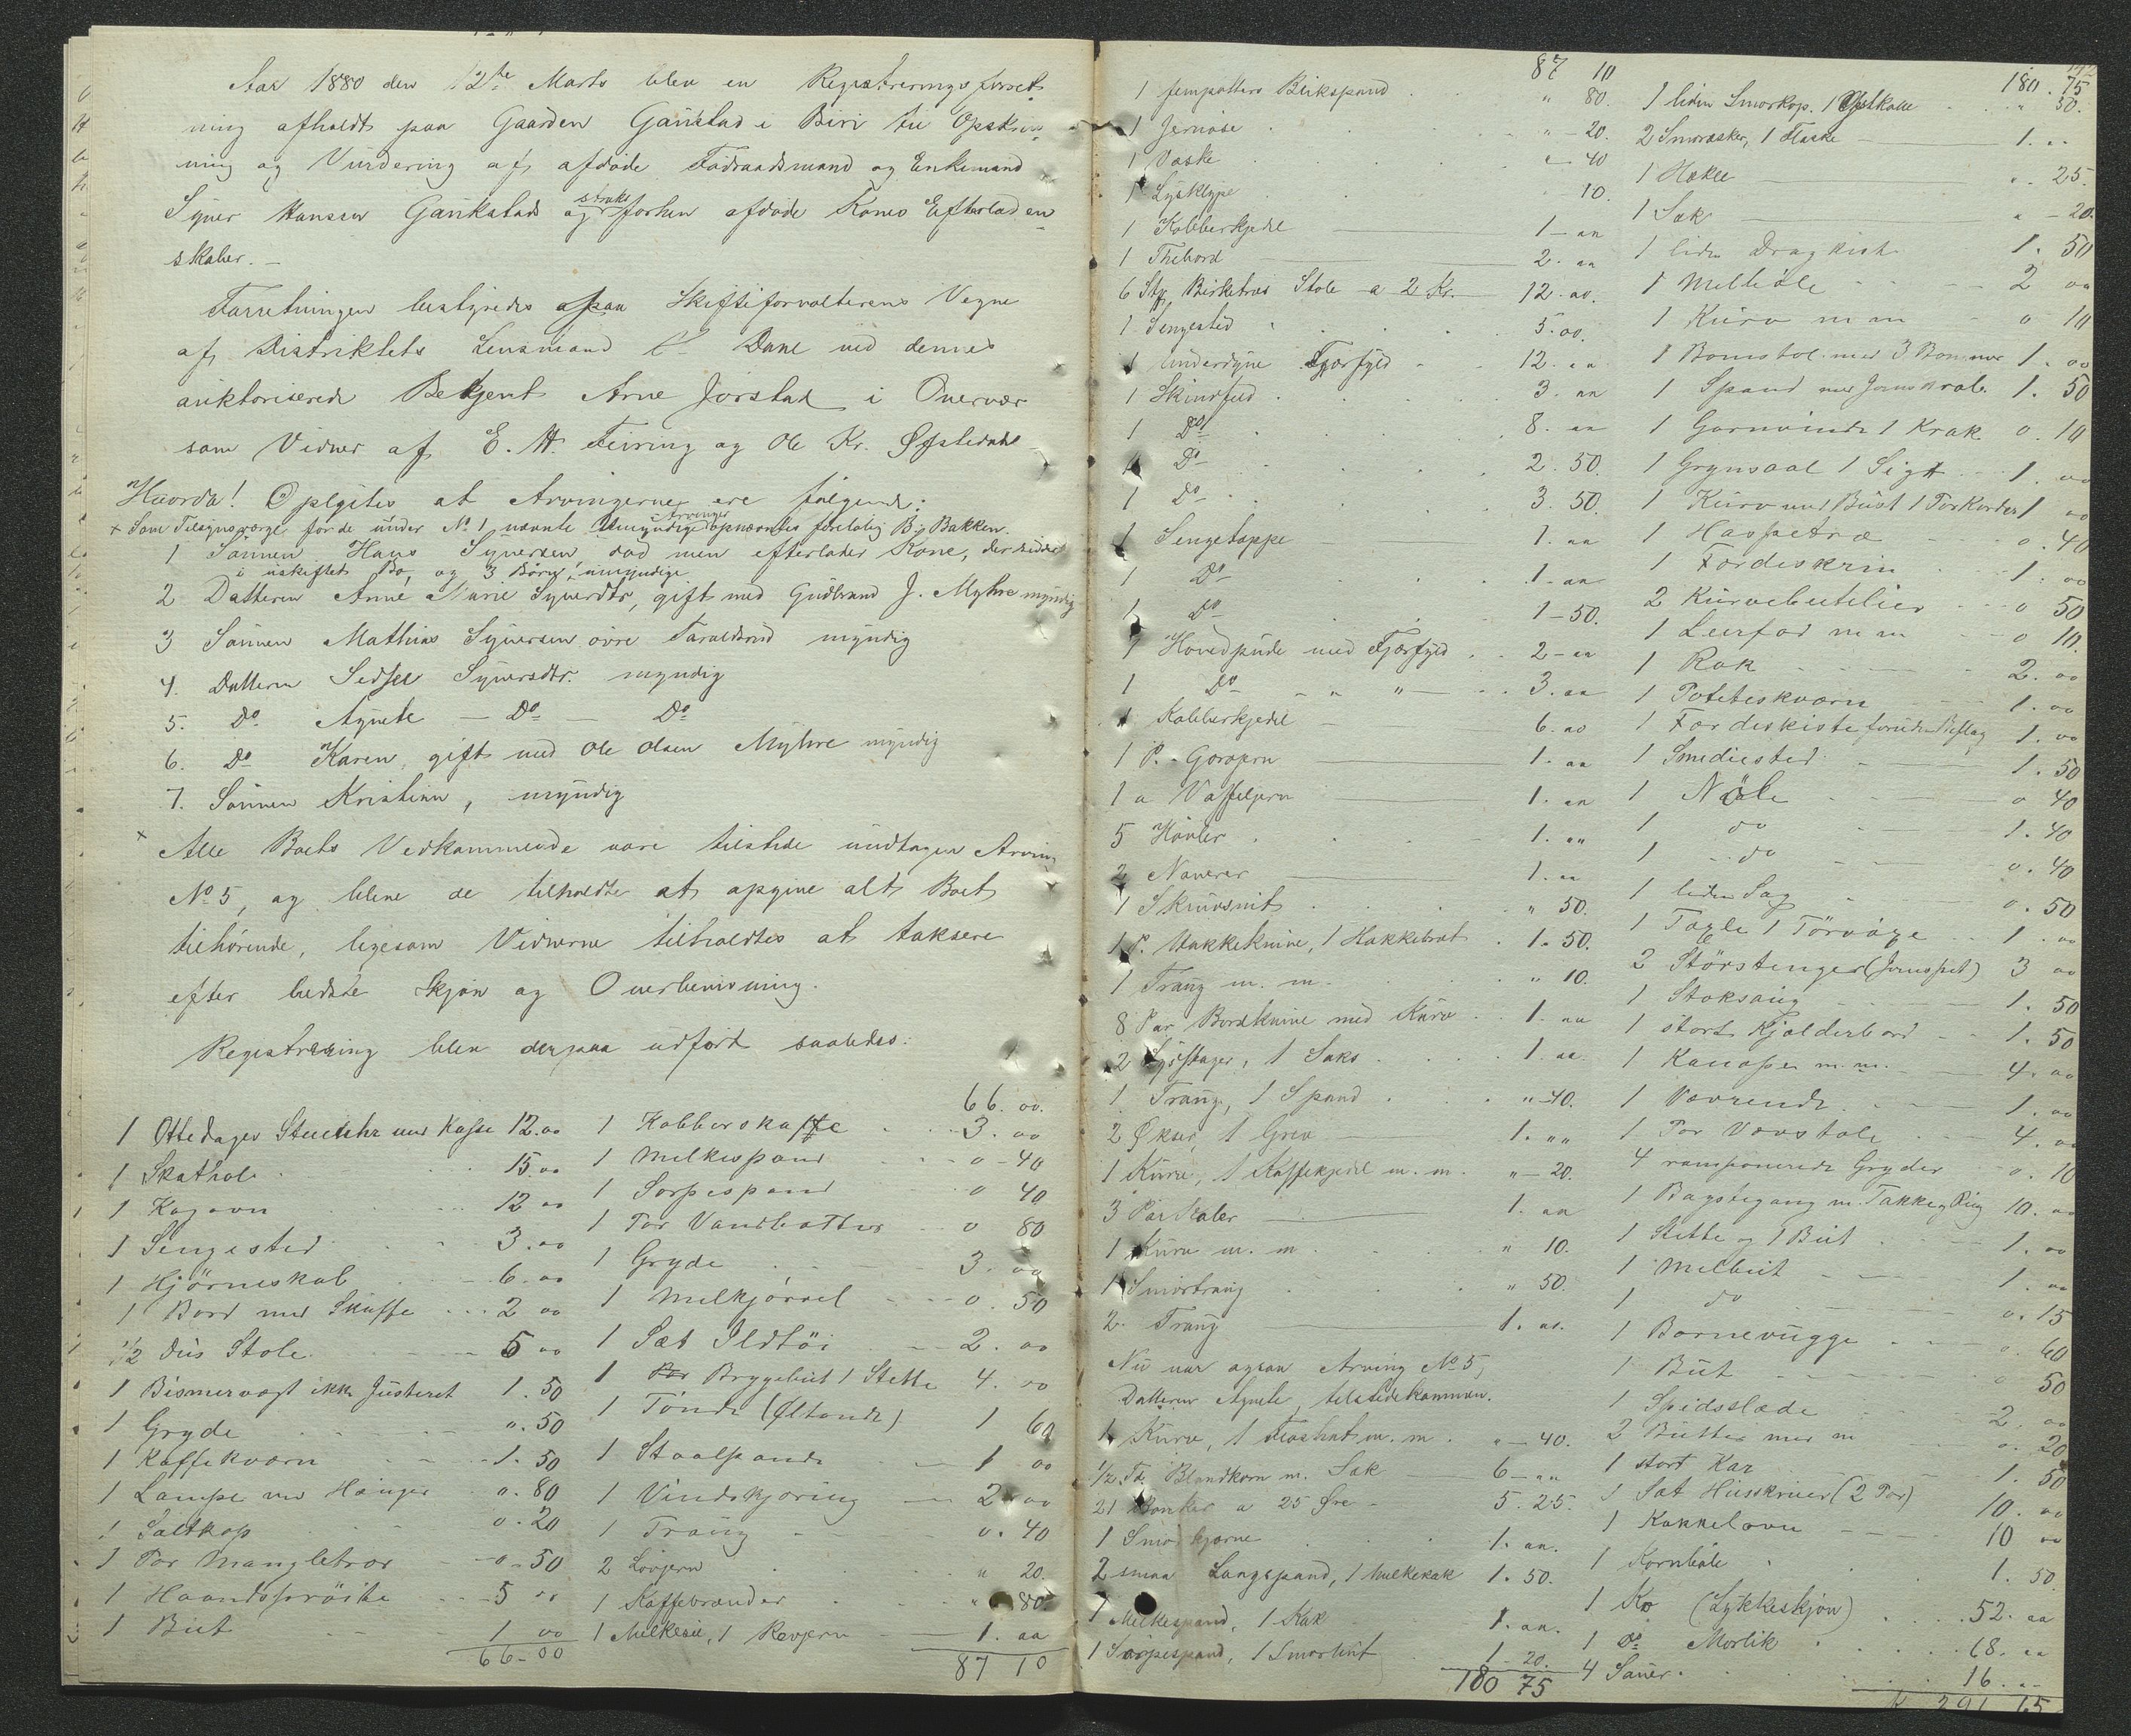 Aar 1880 den 12te Marts blev en Registreringsforret-
ning afholdt paa Gaarden Gaukstad i Biri til Opskriv-
ning og Vurdering af afdøde Føderaadsmand og Enkemand
Syver Hansen Gaukstads og straks forhen afdøde Kones Efterladen-
skaber. –
Forretningen bestyredes paa Skifteforvalterens Vegne
af Distriktets Lensmand Dahl ved dennes
auktoriserede Betjent Arne Jørstad i Overvær
som Vidner af E. H. Feiring og Ole Kr.
Hvorda! Oplystes at Arvingerne ere følgende:
+ Som Tilsynsværge for de under No 1 nævnte Umyndige Arvinger opnævntes foreløbig B. Bakken.
1 Sønnen Hans Syversen død men efterlader Kone, der sidder
i uskiftet Bo, og 3 Børn, umyndige
2 Datteren Anne Marie Syversdtr, gift med Gudbrand J. Myhre myndig
3 Sønnen Mathias Syversen øvre Taraldsrud myndig
4. Datteren Sidsel Syversdtr. myndig
5. Do Agnete – Do – Do
6. Do Karen, gift med Ole Olsen Myhre myndig
7. Sønnen Kristian, myndig
+ Alle Boets Vedkommende vare tilstede undtagen Arving
No 5, og bleve de tilholdte at opgive alt Boet
tilhørende, ligesom Vidnerne tilholdtes at taksere
efter bedste Skjøn og Overbevisning.
Registrering blev derpaa udført saaledes:
1 Otte dages Stueuhr med Kasse 12.oo
1 Skathol 15.oo
1 Kogovn 12 oo
1 Sengested 3.oo
1 Hjörneskab 6.oo
1 Bord med Skuffe 2 oo
1/2 dus Stole 5 oo
1 Bismervægt ikke Justeret 1.50
1 Gryde o.50
1 Kaffekværn 1.50
1 Lampe med Hænger o.80
1 Saltkop o.20
1 Par Mangletrær o.50
1 Haandspröite 5 oo
1 But 1 oo
66–00
66.oo.
1 Kobberskaffe 3.oo
1 Melkespand o–40
1 Sorpespand o 40
1 Par Vandbötter o 80
1 Gryde 3.oo
1 Melkjørrel o.50
1 Sæt Ildtöi 2.oo
1 Bryggebut 1 Stette 4.oo
1 Tönde (Öltönde) 1 60
1 Staalspand 1 oo
1 Vindskjøring 2 oo
1 Traug o.40
2 Lovjern " 20
1 Kaffebrænder " 80
1 Melkesie, 1 Revjern 1.oo
87 10
87 10
1 fempotters Blikspand " 80.
1 Jernøse "–20.
1 Vaske "–40
1 Lysklype 10.
1 Kobberkjedel 1–oo
1 Thebord 2.oo
6 Stk. Birketræs Stole a 2 Kr. 12.oo.
1 Sengested 5.oo.
1 Underdyne Fjærfyld 12.oo
1 Skindfeld 3.oo
1 Do 8.oo
1 Do 2.50.
1 Do 3.50.
1 Sengetæppe 1.oo
1 Do 1–oo
1 Do 1–50.
1 Hovedpude med Fjærfyld 2–oo
1 Do " " 3.oo
1 Kobberkjedel 6.oo
1 P. Gorojern 1.oo
1 a Vaffeljern 1.oo
5 Høvler 1.oo
2 Naverer 1.oo
1 Skruesnit " 50.
1 P. Hakkeknive, 1 Hakkebræt 1.50.
1 Traug m. m. " 10.
8 Par Bordknive med Kurv 1.oo
2 Lysestager, 1 Saks 1.oo.
1 Traug, 1 Spand "–40.
2 Økser, 1 Grev 1.oo
1 Kurv, 1 Kaffekjedel m. m. "–20.
3 Par Seler 1.oo
1 Kurv m. m " 10.
1 Smørtraug " 50.
2. Traug 1.oo.
Nu var ogsaa Arving No 5,
Datteren Agnete, tilstedekommen.
1 Kurv, 1 m. m "–40.
1/2 Td. Blandkorn m. Sæk 6–oo
21 a 25 Øre 5.25.
1 Smørkjærne 1.oo.
2 smaa Langspand, 1 Melkekak 1.50.
1 Melkespand, 1 Kak 1.oo.
1 Sörpespand, 1 Smørbut 1–20.
180 75
180.75
1 liden Smörkop. 1 Ostkolle " 50.
2 Smöræsker, 1 Flaske 1.oo
1 Hekle ". 25.
1 Sæk "–20.
1 liden Dragkiste 1.50
1 Melböle 2 oo
1 Kurv m m o 10
1 Bomstol med 3 Bommer 1.oo
1 Spand med 1.50
1 Garnvinde 1 Krak o.10
1 Grynsaal 1 Sigt 1.oo
1 Kurv med Bust 1 Par Karder 1 oo
1 Haspetræ o.40
1 Færdeskrin 1.oo
2 Kurvebutelier o 50
1 Leirfad m m o 10.
1 Rok 2.oo
1 Poteteskværn 1.oo
1 Færdeskiste foruden Beslag 1.oo
1 Smediested 1.50
1 Nåle o 40
1 do 1.40
1 do o.40
1 liden Sag o.50
1 Tægle 1 Törvöxe 1.oo
2 Störstenger (Jernspet) 3 oo
1 Stoksaug 1.50
1 stort Kjælderbord 1.50
1 Kanape m. m. 4.oo
1 Vævrende 1.oo
1 Par Vævstole 4.oo
4 ramponerede Gryder o.10
1 Bagstegang m. Takke og Ring 10.oo
1 Stette og 1 But 1.oo
1 Melbut 1.oo
1 do o.15
1 Barnevugge o.60
1 But o 50
1 Spidsslæde 2.oo
2 Butter med m o.20
1 stort Kar 1.50
1 Sæt Husskruer (2 Par) 10.oo
1 Kakkelovn 10 oo
1 Kornböle 1.50.
1 Ko (Lykkeskjøn) 52.oo
1 Do Morlik 68.oo
4 Sauer. 16.oo
k 291 65